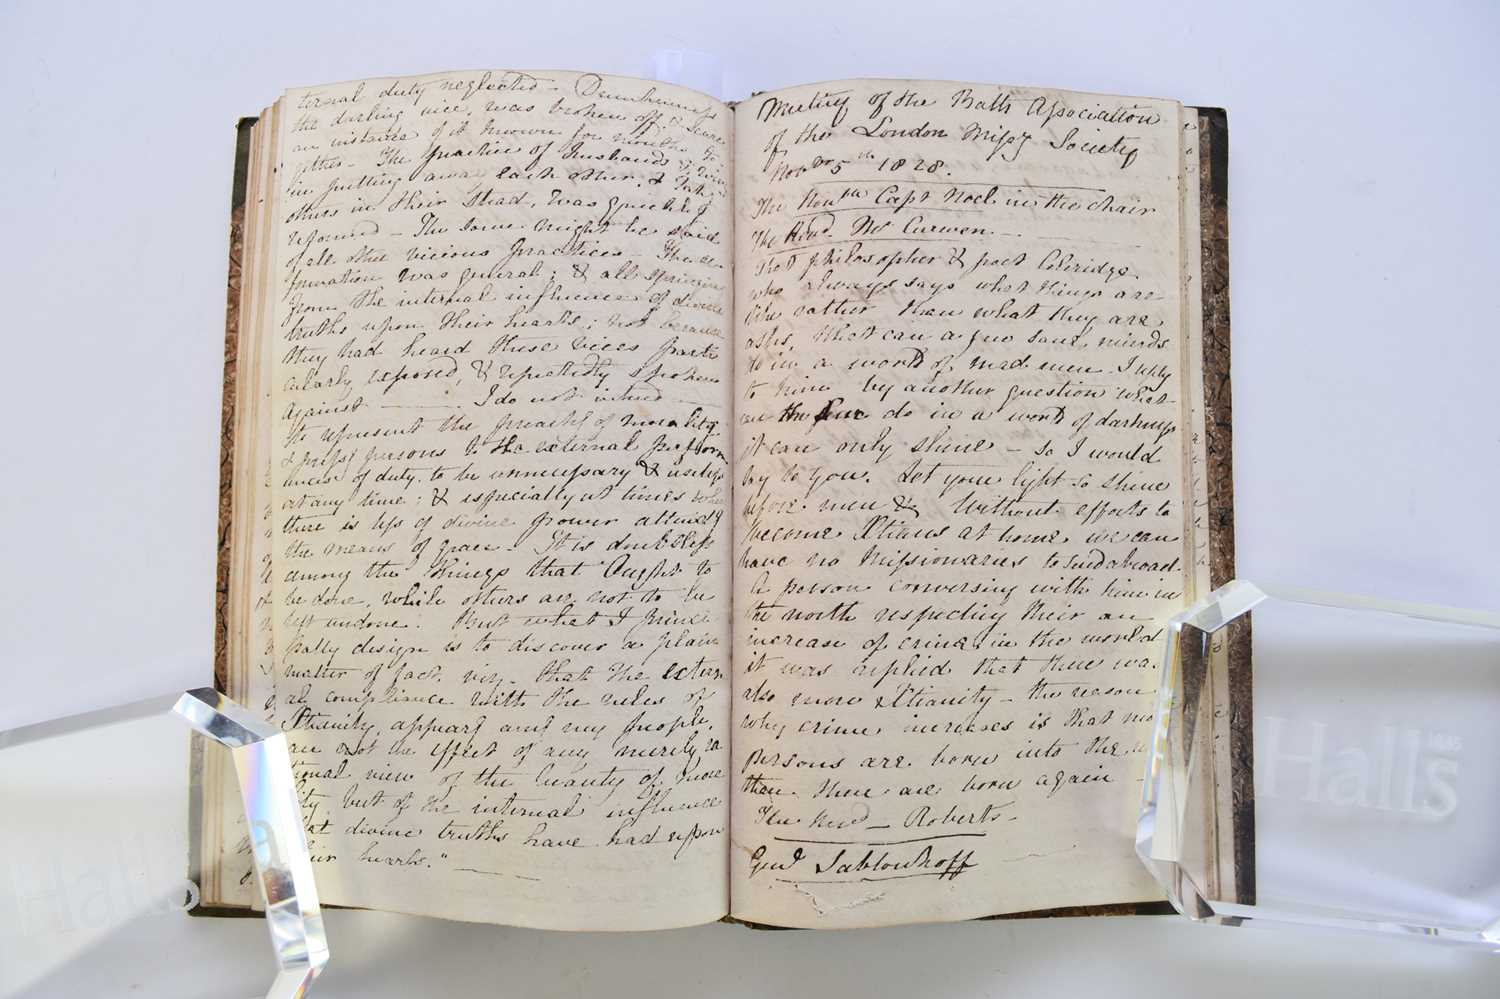 ternal duty neglected - Drunkenness
the darling vice, was broken off, & scarce
an instance of it known for months to-
gether - The practice of husbands & wives
in putting away each other, & taking
others in their stead, was quickly
reformed - The same might be said
of all other vicious practices - The re-
formation was general; & all springing
from the internal influence of divine
truths upon their hearts; not because
they had heard these vices parti
cularly exposed, & repeatedly spoken
against ——— I do not intend
to represent the preachg of morality
& pressg persons to the external perform
ances of duty, to be unnecessary & useless
at any time; & especially at times when
there is less of divine power attendg
the means of grace - It is doubtless
among the things that Ought to
be done, while others are not to be
left undone. But what I princi
pally design is to discover a plain
matter of fact, viz. that the extern
al compliance with the rules of
Xtianity, appearg amg my people,
are not the effect of any merely ra
tional view of the beauty of mora
lity, but of the internal influence
that divine truths have had upon
their hearts."
Meeting of the Bath Association
of the London Missy Society
Novbr 5th 1828.
The Honble Capt Noel in the chair
The Revd. Mr Curwen. -
That philosopher & poet Coleridge
who always says what things are
like rather than what they are
asks, What can a few sane minds
do in a world of mad men. I reply
to him by another question what
can the few do in a world of darkness
it can only shine - So I would
say to you. Let your light so shine
before men &c Without efforts to
become Xtians at home we can
have no Missionaries to send abroad.
A person conversing with him in
the north respecting their an
increase of crime in the world
it was replied that there was
also more Xtianity - the reason
why crime increases is that mo
persons are born into the w
than there are born again -
The Revd - Roberts -
Genl Sabloukoff
Halls
Halls
1845